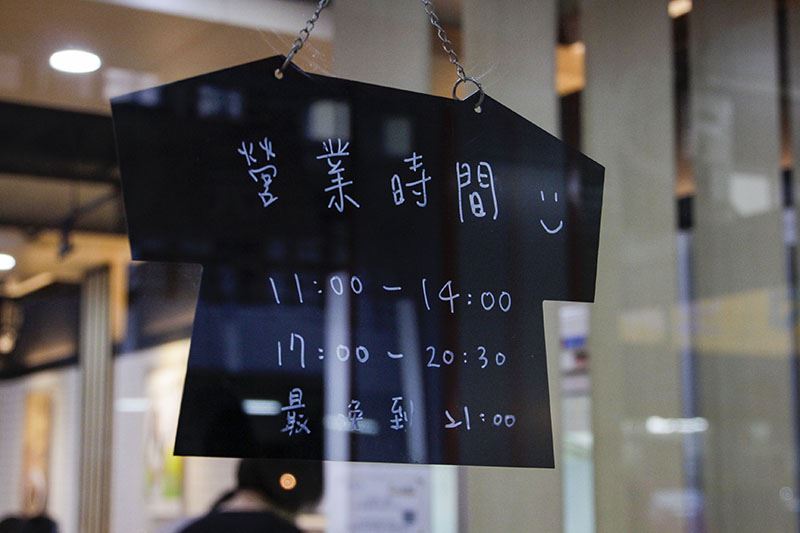 營業時間 :)
11:00 - 14:00
17:00 - 20:30
最晚到 21:00